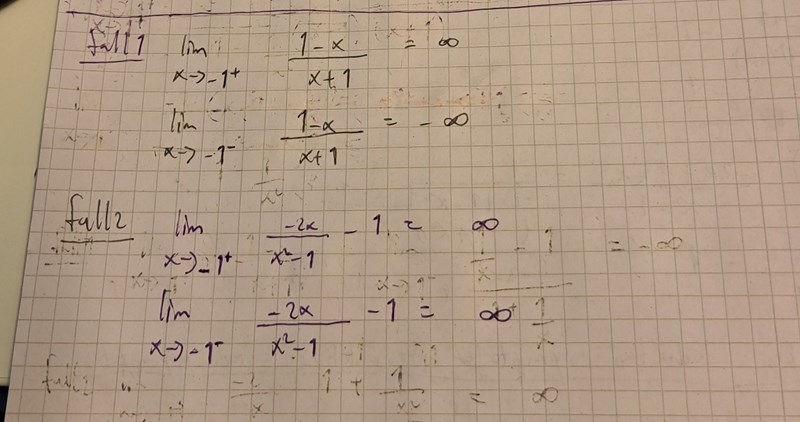 fall 1 lim x→-1⁺ (1-x)/(x+1) = ∞
lim x→-1⁻ (1-x)/(x+1) = -∞
fall 2 lim x→-1⁺ (-2x)/(x²-1) - 1 = ∞
lim x→-1⁻ (-2x)/(x²-1) - 1 = ∞